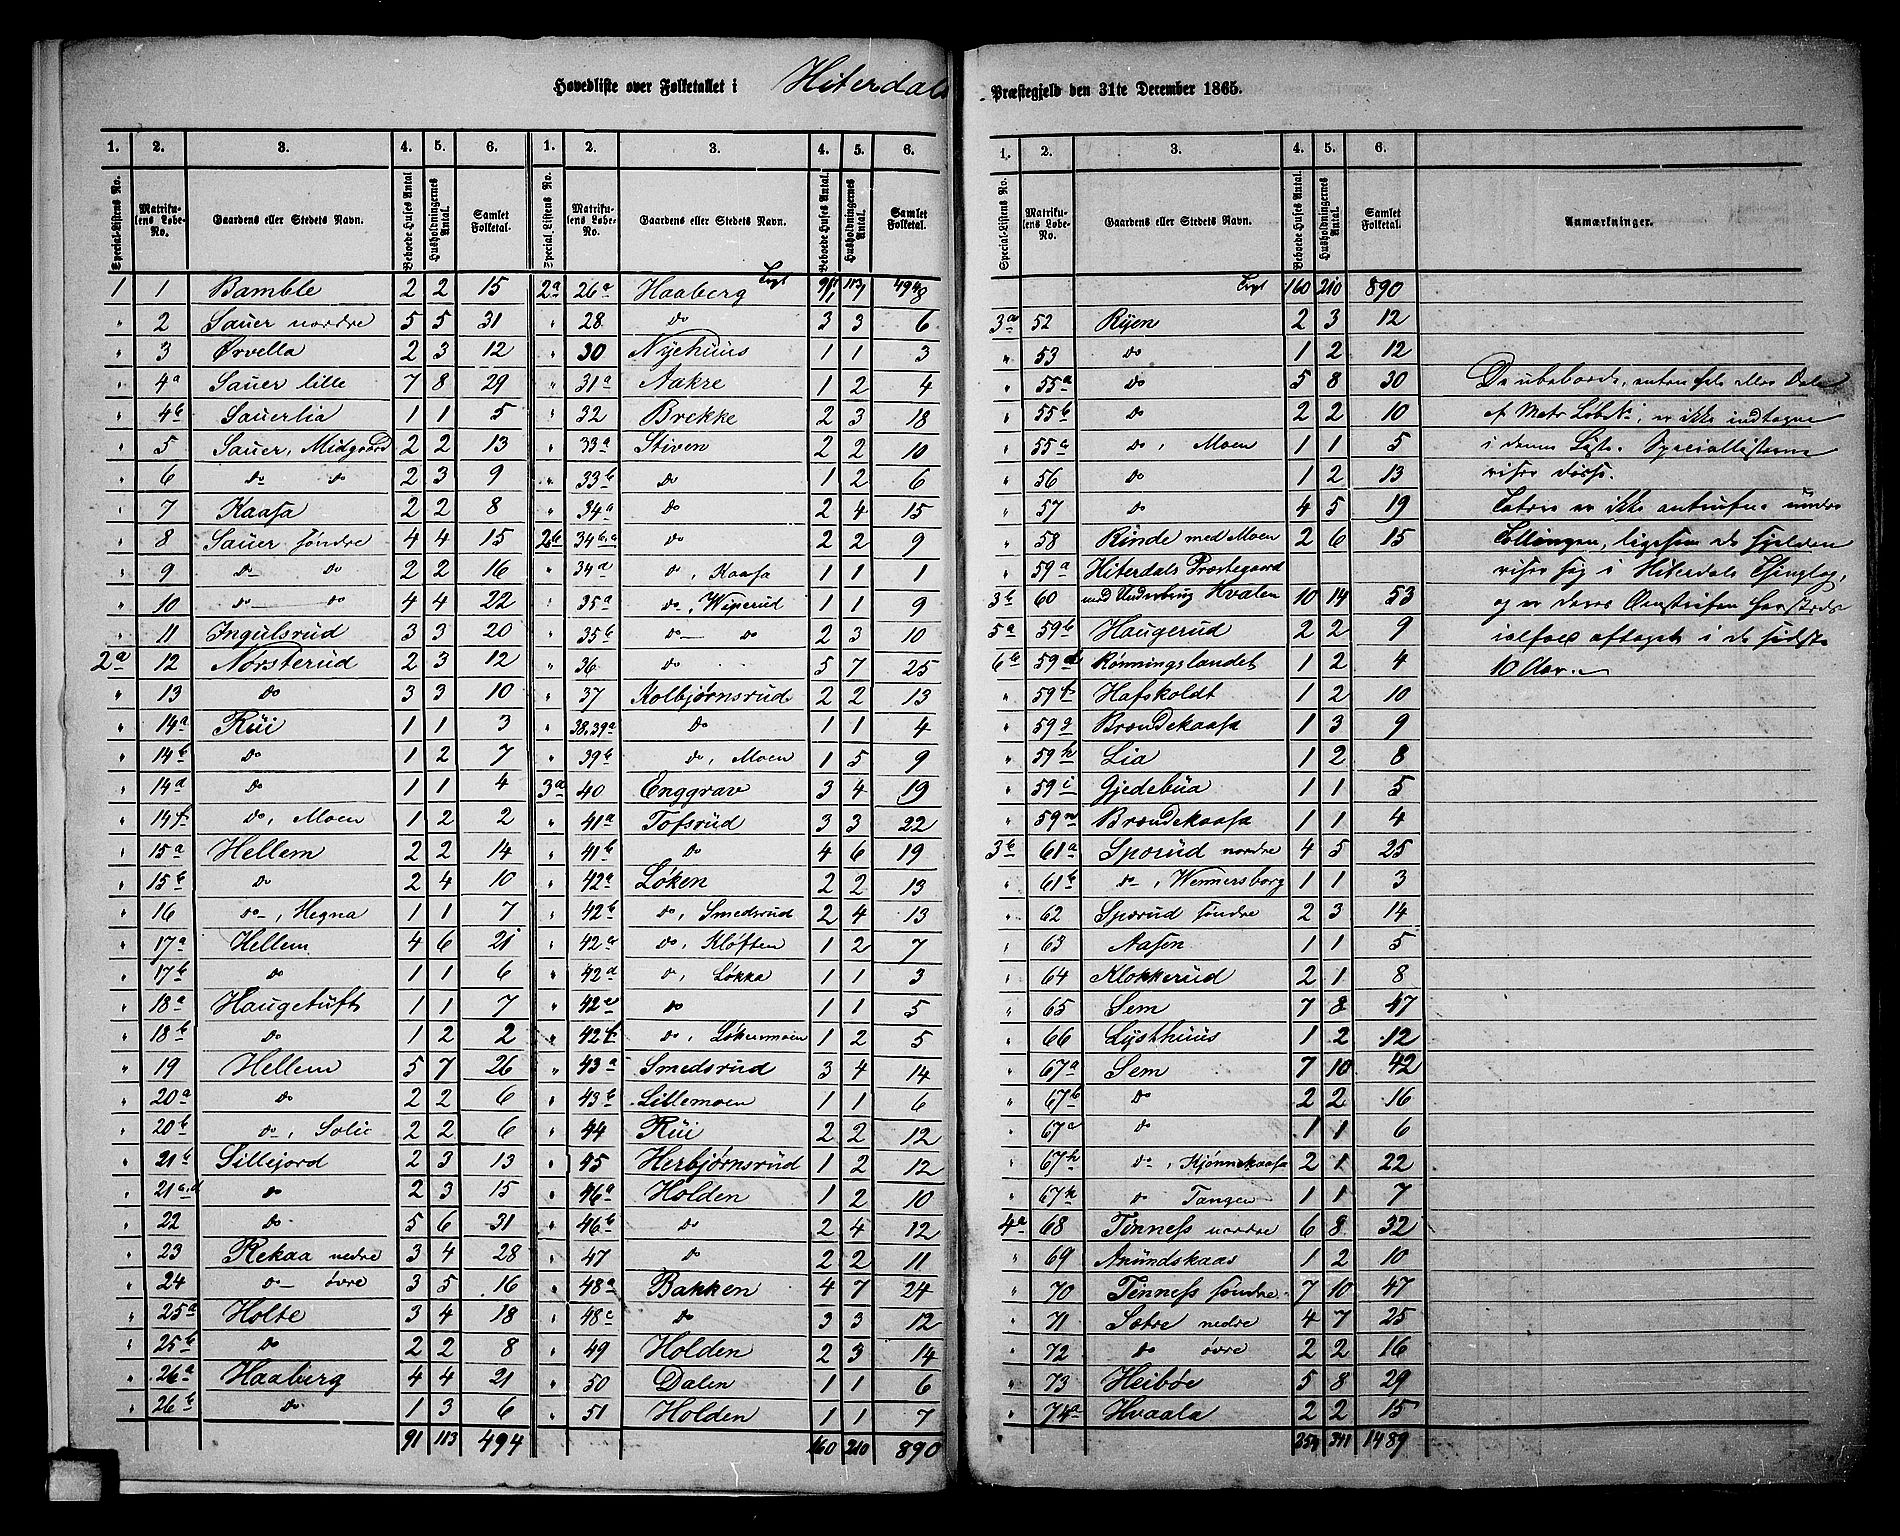 Hovedliste over Folketallet i Hiterdals Præstegjeld den 31te December 1865.
1. 2. 3. 4. 5. 6. 1. 2. 3. 4. 5. 6.
Special-Listens No. Matrikulens Løbe-No. Gaardens eller Stedets Navn. Beboede Huses Antal Husholdningernes Antal. Samlet Folketal. Special-Listens No. Matrikulens Løbe-No. Gaardens eller Stedets Navn. Beboede Huses Antal. Husholdningernes Antal Samlet Folketal.
1 1 Bamble 2 2 15
" 2 Sauer nordre 5 5 31
" 3 Ørvella 2 3 12
" 4a Sauer lille 7 8 29
" 4b Sauerlia 1 1 5
" 5 Sauer, Midgaard 2 2 13
" 6 do do 2 3 9
" 7 Kaasa 2 2 8
" 8 Sauer søndre 4 4 15
" 9 do do 2 2 16
" 10 do do 4 4 22
" 11 Ingulsrud 3 3 20
2a 12 Norsterud 2 3 12
" 13 do 3 3 10
" 14a Rui 1 1 3
" 14b do 1 2 7
" 14d do 1 1 4
" 14f do, Moen 1 2 2
" 15a Hellem 2 2 14
" 15b do 2 4 10
" 16 do, Hegna 1 1 7
" 17a Hellem 4 6 21
" 17b do 1 1 6
" 18a Haugetuft 1 1 7
" 18b do 1 2 2
" 19 Hellem 5 7 26
" 20a do 2 2 6
" 20b do, Solie 2 2 6
" 21b Lillejord 2 3 13
" 21c,d do 2 3 15
" 22 do 5 6 31
" 23 Rekaa nedre 3 4 28
" 24 do øvre 3 5 16
" 25a Holte 3 4 18
" 25b do 2 2 8
" 26a Haaberg 4 4 21
" 26b do 1 3 6
91 113 494
Lvgt 91 113 494
2a 26c Haaberg 1 1 8
" 28 do 3 3 6
" 30 Nyehuus 1 1 3
" 31a Aakre 1 2 4
" 32 Brekke 2 3 18
" 33a Stiven 2 2 10
" 33b do 1 2 6
" 34a do 2 4 15
2b 34b,c do 2 2 9
" 34d do, Kaasa 1 1 1
" 35a do, Wiperud 1 1 9
" 35b do do 2 3 10
" 36 do 5 7 25
" 37 Kolbjørnsrud 2 2 13
" 38.39a do 1 1 4
" 39b do, Moen 1 5 9
3a 40 Enggrav 3 4 19
" 41a Tofsrud 3 3 22
" 41b do 4 6 19
" 42a Løken 2 2 13
" 42b do, Smedsrud 2 4 13
" 42c do, Kløften 1 2 7
" 42d do, Løkka 1 1 3
" 42e do 1 1 5
" 42f do, Løkenmoen 1 2 5
" 43a Smedsrud 3 4 14
" 43b Lillemoen 1 1 6
" 44 Rui 2 2 12
" 45 Herbjørnsrud 1 2 12
" 46a Holden 1 2 10
" 46b do 2 4 12
" 47 do 2 2 11
" 48a Bakken 4 7 24
" 48c do 3 3 12
" 49 Holden 2 3 14
" 50 Dalen 1 1 6
" 51 Holden 1 1 7
160 210 890
1. 2. 3. 4. 5. 6.
Special-Listens No. Matrikulens Løbe-No. Gaardens eller Stedets Navn. Beboede Huses Antal. Husholdningernes Antal. Samlet Folketal. Anmærkninger.
160 210 890
3a 52 Ryen 2 3 12
" 53 do 1 2 12
" 55a do 5 8 30
" 55b do 2 2 10
" 55a do, Moen 1 1 5
" 56 do 1 2 13
" 57 do 4 5 19
" 58 Rinde med Moen 2 6 15
" 59a Hiterdals Præstegaard
3b 60 med Underbrug Hvalen 10 14 53
5a 59b Haugerud 2 2 9
6b 59d Rønningslandet 1 2 4
" 59f Hafskoldt 1 2 10
" 59g Brændekaasa 1 3 9
" 59h Lia 1 2 8
" 59i Gjedebua 1 1 5
" 59n Brændekaasa 1 1 4
3b 61a Sporud nordre 4 5 25
" 61b do, Wennersborg 1 1 3
" 62 Sporud søndre 2 3 14
" 63 Aasen 1 1 5
" 64 Klokkerud 2 1 8
" 65 Sem 7 8 47
" 66 Lysthuus 1 2 12
" 67a Sem 7 10 42
" 67b do 2 2 16
" 67d do 1 1 6
" 67h do, Kjønnekaasa 2 1 22
" 67k do Tangen 1 1 7
4a 68 Tinness nordre 6 8 32
" 69 Amundskaas 1 2 10
" 70 Tinness søndre 7 10 47
" 71 Sætre nedre 4 7 25
" 72 do øvre 2 2 16
" 73 Heibøe 5 8 29
" 74a Hvaala 2 2 15
254 341 1489
De ubeboede, eller Dele
af Matr Løbe N, er ikke indtagne
i denne Liste. Speciallisterne
viser disse.
er ikke antrufne under
Tællingen, ligesom de sjelden
viser sig i Hiterdals Thinglag,
og er deres
aftaget i de sidste
10 Aar.